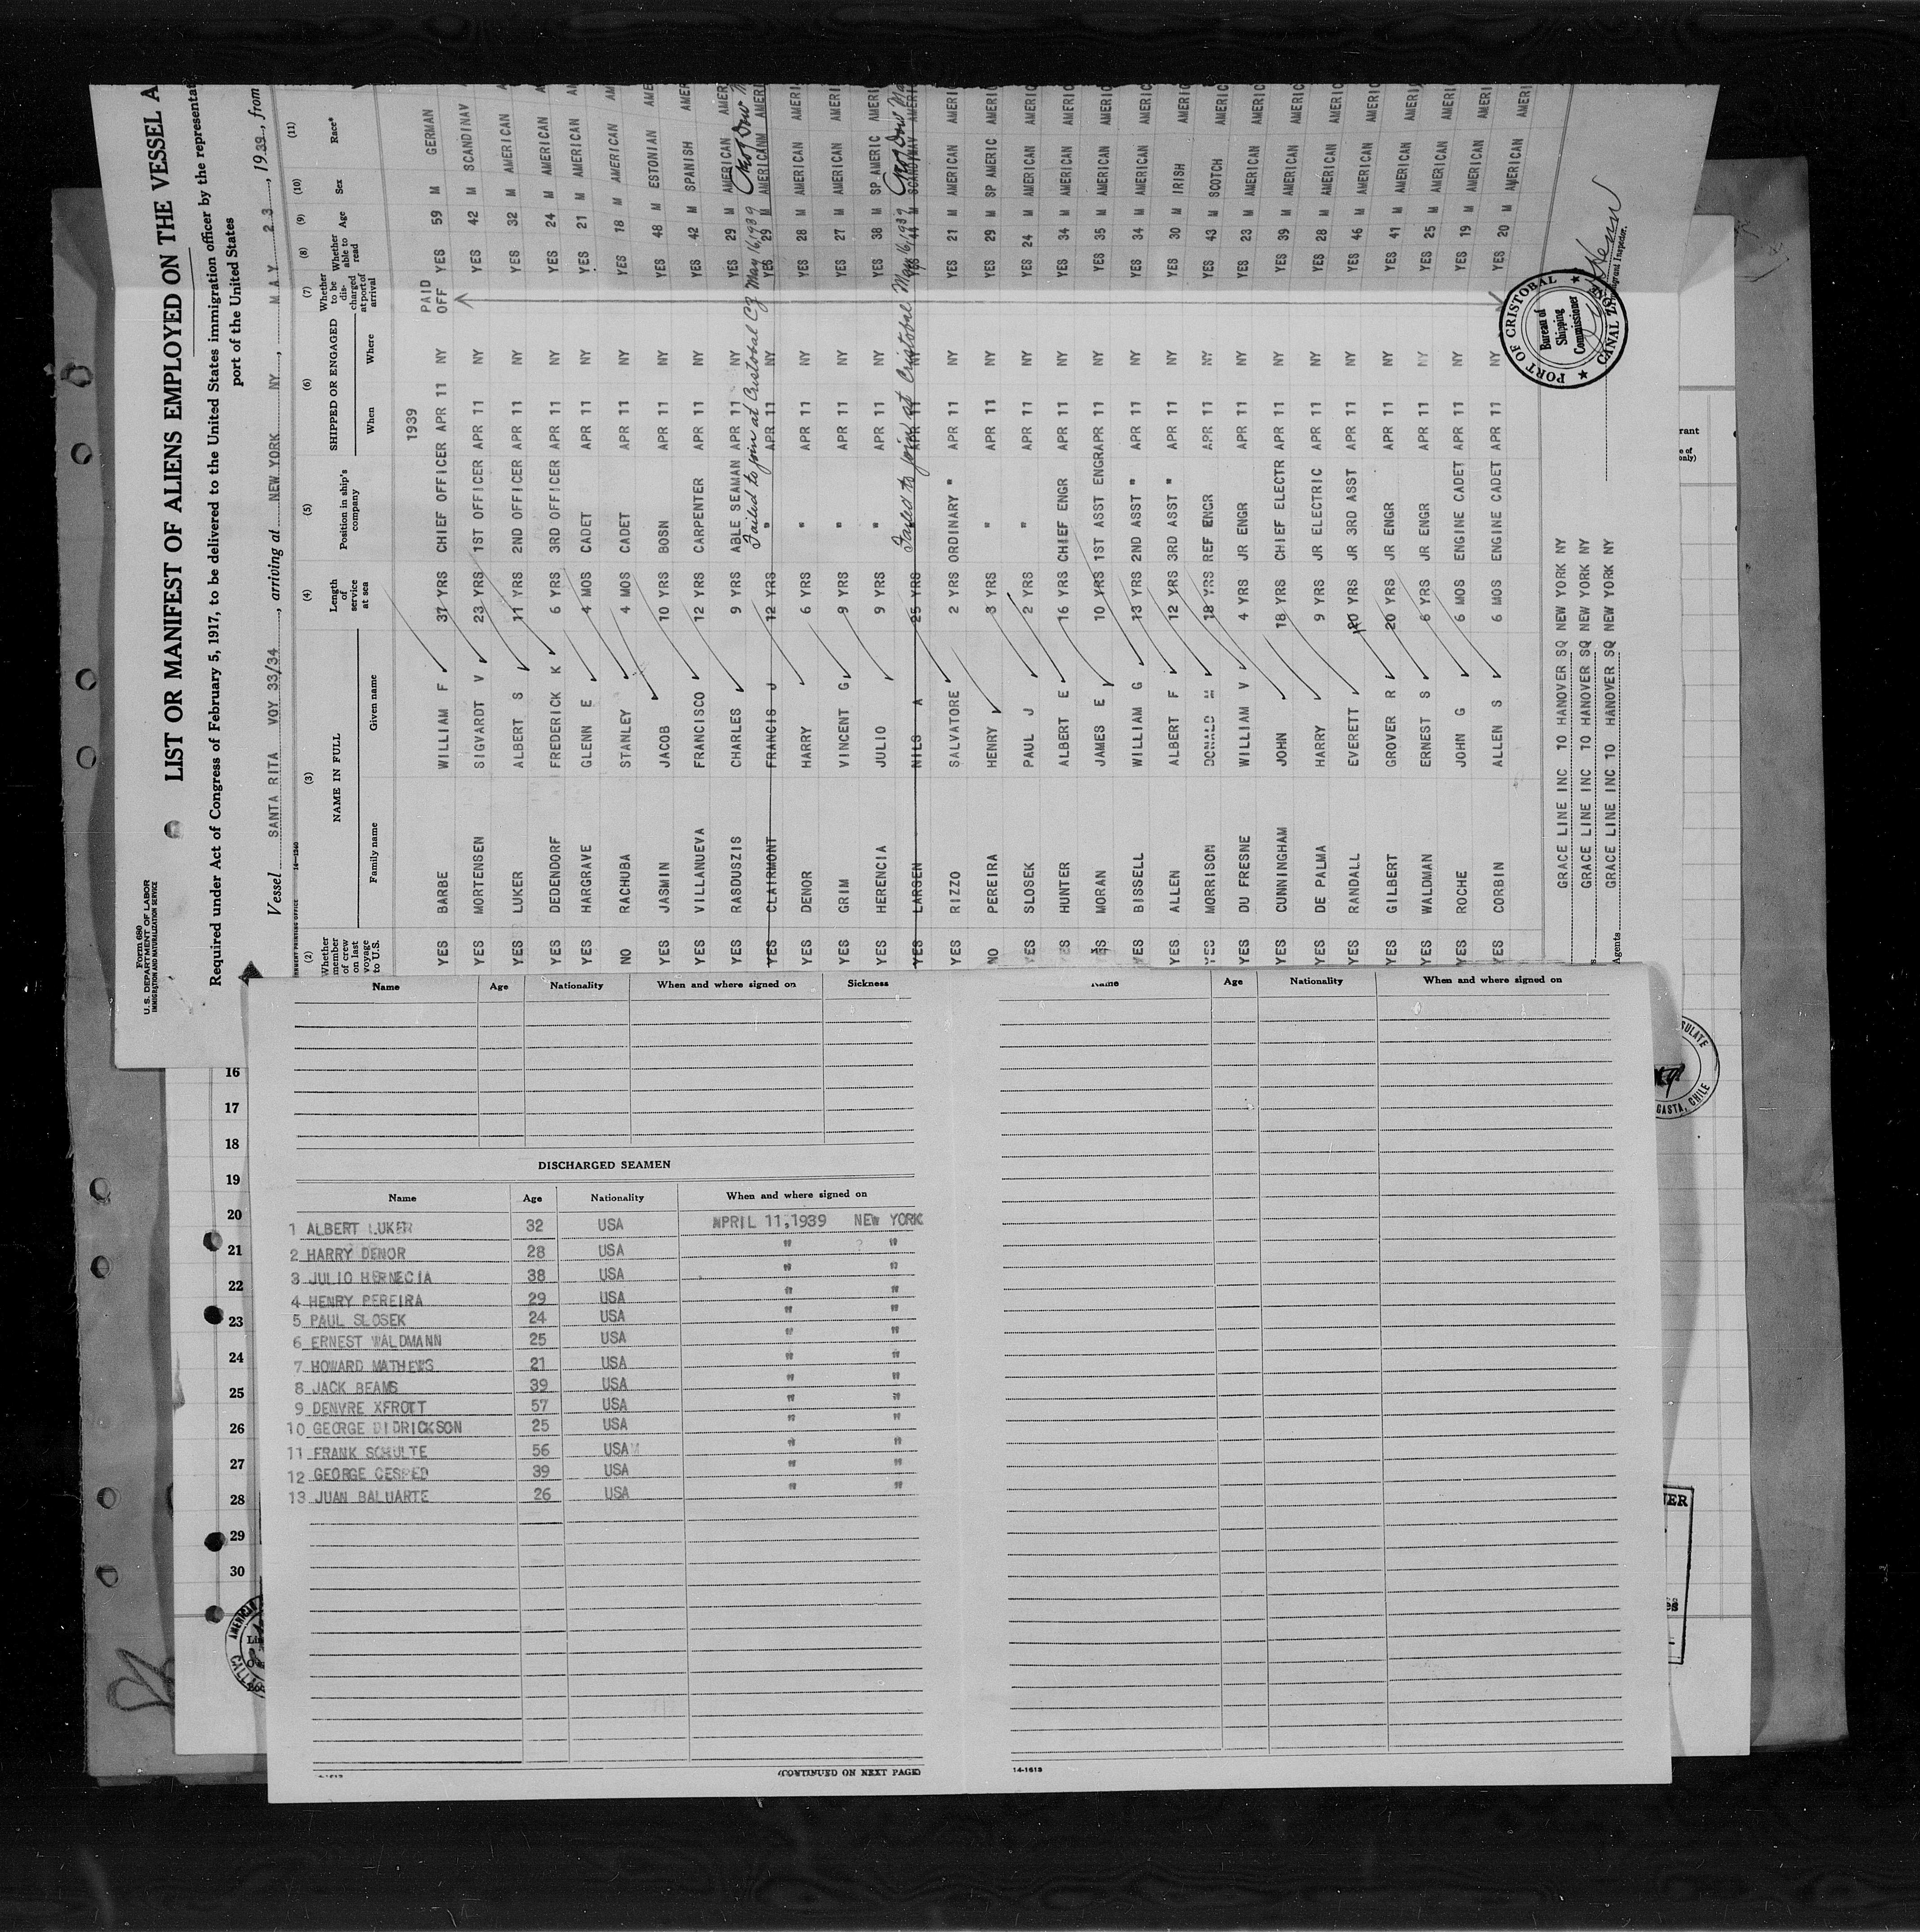 Form 680
U.S. DEPARTMENT OF LABOR
IMMIGRATION AND NATURALIZATION SERVICE
LIST OR MANIFEST OF ALIENS EMPLOYED ON THE VESSEL A
Required under Act of Congress of February 5, 1917, to be delivered to the United States immigration officer by the representat
port of the United States
Vessel SANTA RITA VOY 33/34, arriving at NEW YORK NY, MAY 23, 1939, from
(2) (3) (4) (5) (6) (7) (8) (9) (10) (11)
Whether member of crew on last voyage to U.S. NAME IN FULL Length of service at sea Position in ship's company SHIPPED OR ENGAGED Whether to be discharged at port of arrival Whether able to read Age Sex Race*
Family name Given name When Where
1939 PAID OFF
YES BARBE WILLIAM F 37 YRS CHIEF OFFICER APR 11 NY YES 59 M GERMAN
YES MORTENSEN SIGVARDT V 23 YRS 1ST OFFICER APR 11 NY YES 42 M SCANDINAV A
YES LUKER ALBERT S 11 YRS 2ND OFFICER APR 11 NY YES 32 M AMERICAN A
YES DEDENDORF FREDERICK K 6 YRS 3RD OFFICER APR 11 NY YES 24 M AMERICAN A
YES HARGRAVE GLENN E 4 MOS CADET APR 11 NY YES 21 M AMERICAN AM
NO RACHUBA STANLEY 4 MOS CADET APR 11 NY YES 18 M AMERICAN AM
YES JASMIN JACOB 10 YRS BOSN APR 11 NY YES 48 M ESTONIAN AME
YES VILLANUEVA FRANCISCO 12 YRS CARPENTER APR 11 NY YES 42 M SPANISH AMER
YES RASDUSZIS CHARLES 9 YRS ABLE SEAMAN APR 11 NY YES 29 M AMERICAN AMER
Failed to join at Cristobal CZ May 16, 1939
YES CLAIRMONT FRANCIS J 12 YRS " APR 11 NY YES 29 M AMERICANM AMERI
YES DENOR HARRY 6 YRS " APR 11 NY YES 28 M AMERICAN AMERI
YES GRIM VINCENT G 9 YRS " APR 11 NY YES 27 M AMERICAN AMERI
YES HERENCIA JULIO 9 YRS " APR 11 NY YES 38 M SP AMERIC AMERI
Failed to join at Cristobal May 16, 1939
YES LARSEN NILS A 25 YRS APR 11 NY YES 44 M SCANDINAV AMERIC
YES RIZZO SALVATORE 2 YRS ORDINARY " APR 11 NY YES 21 M AMERICAN AMERIC
NO PEREIRA HENRY 3 YRS " APR 11 NY YES 29 M SP AMERIC AMERIC
YES SLOSEK PAUL J 2 YRS " APR 11 NY YES 24 M AMERICAN AMERIC
YES HUNTER ALBERT E 16 YRS CHIEF ENGR APR 11 NY YES 34 M AMERICAN AMERIC
YES MORAN JAMES E 10 YRS 1ST ASST ENGR APR 11 NY YES 35 M AMERICAN AMERIC
YES BISSELL WILLIAM G 13 YRS 2ND ASST " APR 11 NY YES 34 M AMERICAN AMERIC
YES ALLEN ALBERT F 12 YRS 3RD ASST " APR 11 NY YES 30 M IRISH AMERIC
YES MORRISON DONALD M 18 YRS REF ENGR APR 11 NY YES 43 M SCOTCH AMERIC
YES DU FRESNE WILLIAM V 4 YRS JR ENGR APR 11 NY YES 23 M AMERICAN AMERIC
YES CUNNINGHAM JOHN 18 YRS CHIEF ELECTR APR 11 NY YES 39 M AMERICAN AMERIC
YES DE PALMA HARRY 9 YRS JR ELECTRIC APR 11 NY YES 28 M AMERICAN AMERIC
YES RANDALL EVERETT 20 YRS JR 3RD ASST APR 11 NY YES 46 M AMERICAN AMERIC
YES GILBERT GROVER R 20 YRS JR ENGR APR 11 NY YES 41 M AMERICAN AMERI
YES WALDMAN ERNEST S 6 YRS JR ENGR APR 11 NY YES 25 M AMERICAN AMERI
YES ROCHE JOHN G 6 MOS ENGINE CADET APR 11 NY YES 19 M AMERICAN AMERI
YES CORBIN ALLEN S 6 MOS ENGINE CADET APR 11 NY YES 20 M AMERICAN AMERI
GRACE LINE INC 10 HANOVER SQ NEW YORK NY
GRACE LINE INC 10 HANOVER SQ NEW YORK NY
Agents GRACE LINE INC 10 HANOVER SQ NEW YORK NY
PORT OF CRISTOBAL
Bureau of Shipping Commissioner
CANAL ZONE
Immigrant Inspector.
Name Age Nationality When and where signed on Sickness
DISCHARGED SEAMEN
Name Age Nationality When and where signed on
1 ALBERT LUKER 32 USA APRIL 11,1939 NEW YORK
2 HARRY DENOR 28 USA " "
3 JULIO HERNECIA 38 USA " "
4 HENRY PEREIRA 29 USA " "
5 PAUL SLOSEK 24 USA " "
6 ERNEST WALDMANN 25 USA " "
7 HOWARD MATHEWS 21 USA " "
8 JACK BEAMS 39 USA " "
9 DENVRE XFROTT 57 USA " "
10 GEORGE DIDRICKSON 25 USA " "
11 FRANK SCHULTE 56 USA " "
12 GEORGE CESPED 39 USA " "
13 JUAN BALUARTE 26 USA " "
(CONTINUED ON NEXT PAGE)
Name Age Nationality When and where signed on
14-1613
16
17
18
19
20
21
22
23
24
25
26
27
28
29
30
GASTA, CHILE